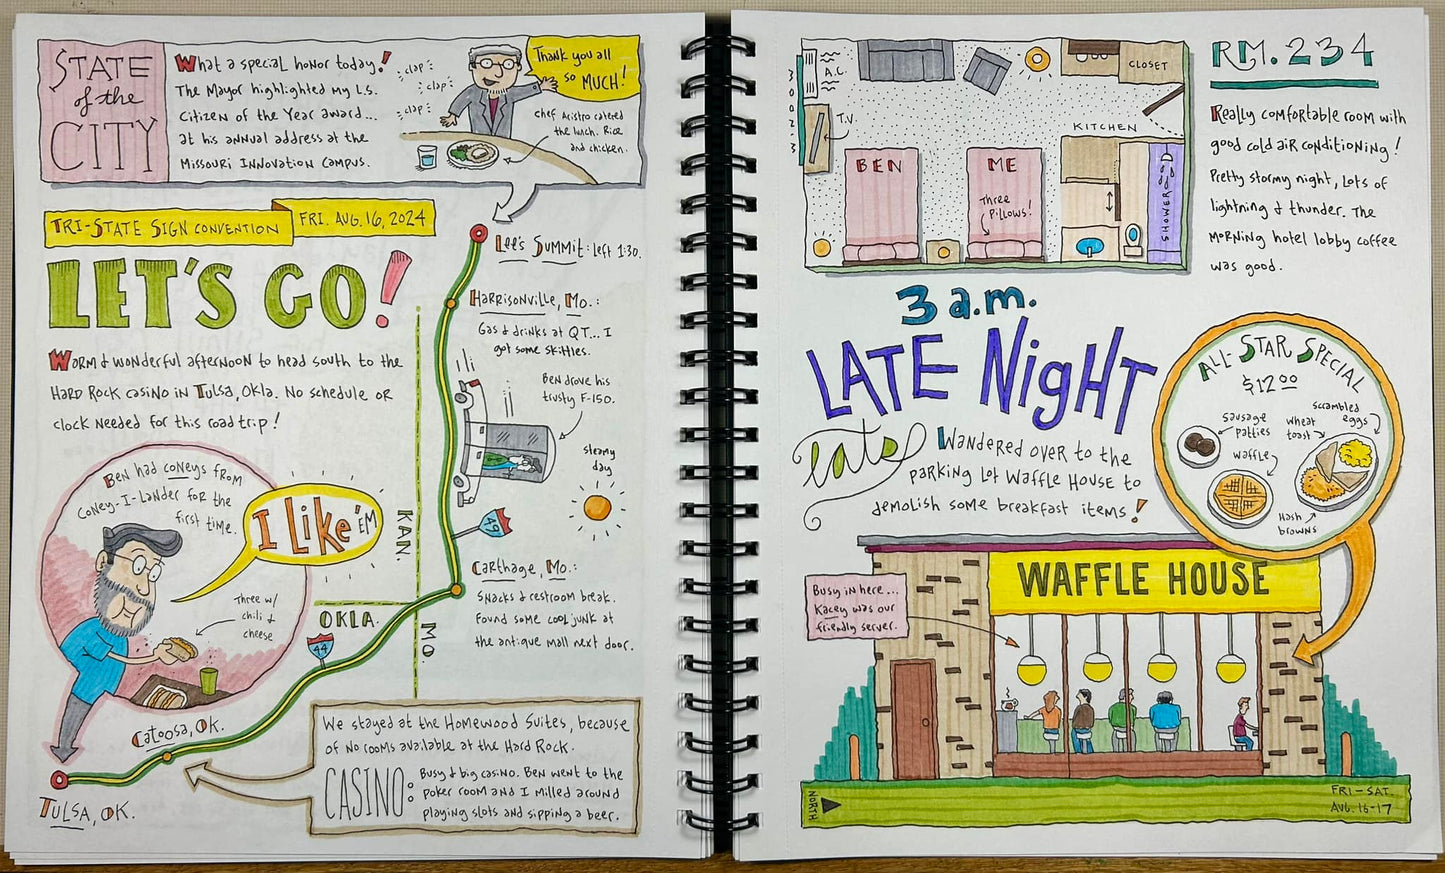 STATE
of the
CITY
What a special honor today!
The Mayor highlighted my L.S.
Citizen of the Year award...
at his annual address at the
Missouri Innovation Campus.
clap
clap
clap
Thank you all
so MUCH!
chef Acistro catered
the lunch. Rice
and chicken.
TRI-STATE SIGN CONVENTION
FRI. AUG. 16, 2024
LET'S GO!
Warm & wonderful afternoon to head south to the
Hard Rock casino in Tulsa, Okla. No schedule or
clock needed for this road trip!
Lee's Summit: left 1:30.
Harrisonville, Mo.:
Gas & drinks at QT... I
got some skittles.
Ben drove his
trusty F-150.
steamy
day
49
KAN.
OKLA.
MO.
44
Carthage, Mo.:
Snacks & restroom break.
Found some cool junk at
the antique mall next door.
Ben had coneys from
Coney-I-Lander for the
first time.
I Like 'EM
Three w/
chili &
cheese
Catoosa, OK.
TULSA, OK.
We stayed at the Homewood Suites, because
of no rooms available at the Hard Rock.
CASINO:
Busy & big casino. Ben went to the
poker room and I milled around
playing slots and sipping a beer.
A.C.
T.V.
CLOSET
KITCHEN
BEN
ME
Three
Pillows!
SHOWER
RM. 234
Really comfortable room with
good cold air conditioning!
Pretty stormy night, lots of
lightning & thunder. The
morning hotel lobby coffee
was good.
3 a.m.
LATE NigHT
eats
Wandered over to the
parking lot Waffle House to
demolish some breakfast items!
ALL-STAR SPECIAL
$12.00
sausage
patties
wheat
toast
scrambled
eggs
waffle
Hash
browns
Busy in here...
Kacey was our
friendly server.
WAFFLE HOUSE
NORTH
FRI-SAT.
AUG. 16-17